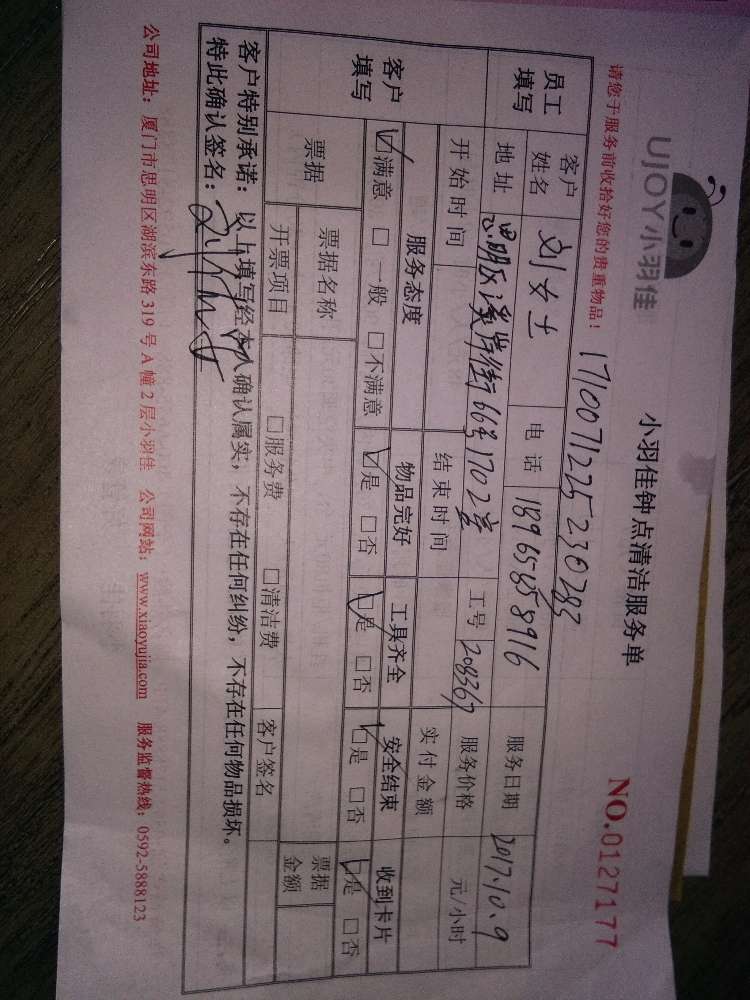 UJOY小羽佳
小羽佳钟点清洁服务单
NO.0127177
请您于服务前收拾好您的贵重物品！
1710071225230283
员工填写 客户姓名 刘女士 电话 18965858916 服务日期 2017.10.9
地址 思明区溪岸街66号1702室 工号 208367 服务价格 元/小时
开始时间 结束时间 实付金额
客户填写 服务态度 物品完好 工具齐全 安全结束 收到卡片
☑满意 □一般 □不满意 ☑是 □否 ☑是 □否 ☑是 □否 ☑是 □否
票据 票据名称 票据金额
开票项目 □服务费 □清洁费 客户签名
客户特别承诺：以上填写经本人确认属实，不存在任何纠纷，不存在任何物品损坏。
特此确认签名：
公司地址：厦门市思明区湖滨东路319号A幢2层小羽佳 公司网站：www.xiaoyujia.com 服务监督热线：0592-5888123